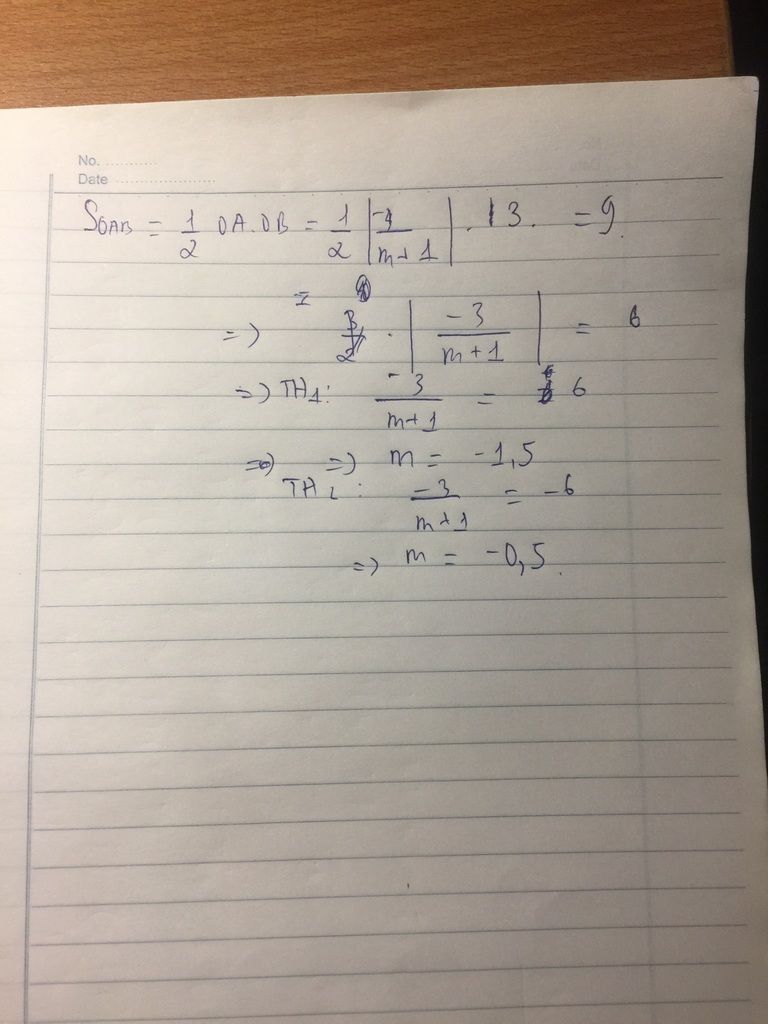 No. ...........
Date ......................
S_OAB = 1/2 OA.OB = 1/2 |-3/(m+1)| . 3. = 9.
=
=> . |-3/(m+1)| = 6
=> TH1: -3/(m+1) = 6
=> => m = -1,5
TH2: -3/(m+1) = -6
=> m = -0,5.